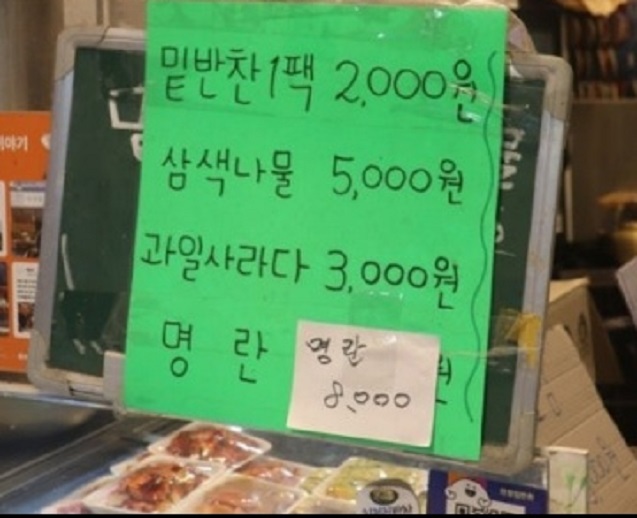 밑반찬 1팩 2,000원
삼색나물 5,000원
과일사라다 3,000원
명 란 원
명란
8,000
이야기